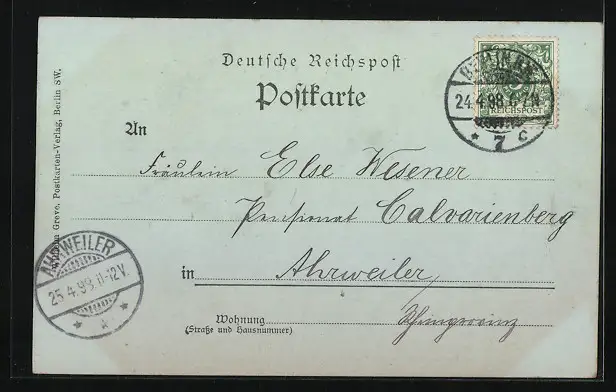 Deutsche Reichspost
Postkarte
An
Fräulein Else Wesener
Pensionat Calvarienberg
in Ahrweiler
Rheinprovinz
Wohnung
(Straße und Hausnummer)
Grove, Postkarten-Verlag, Berlin SW.
BERLIN
24.4.98.6-7N.
* 7 c
REICHSPOST
AHRWEILER
25.4.98.11-12V.